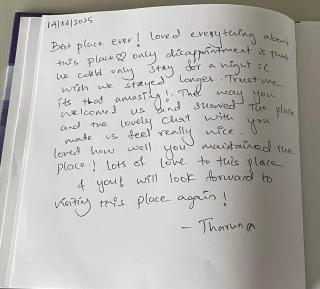 14/04/2025
Best place ever! loved everything about
this place♡ only disappointment is that
we could only stay for a night :(
wish we stayed longer. Trust me
its that amazing!. The way you
welcomed us and showed the place
and the lovely chat with you
made us feel really nice.
loved how well you maintained the
place! lots of love to this place
& you! will look forward to
visiting this place again!
- Tharuna